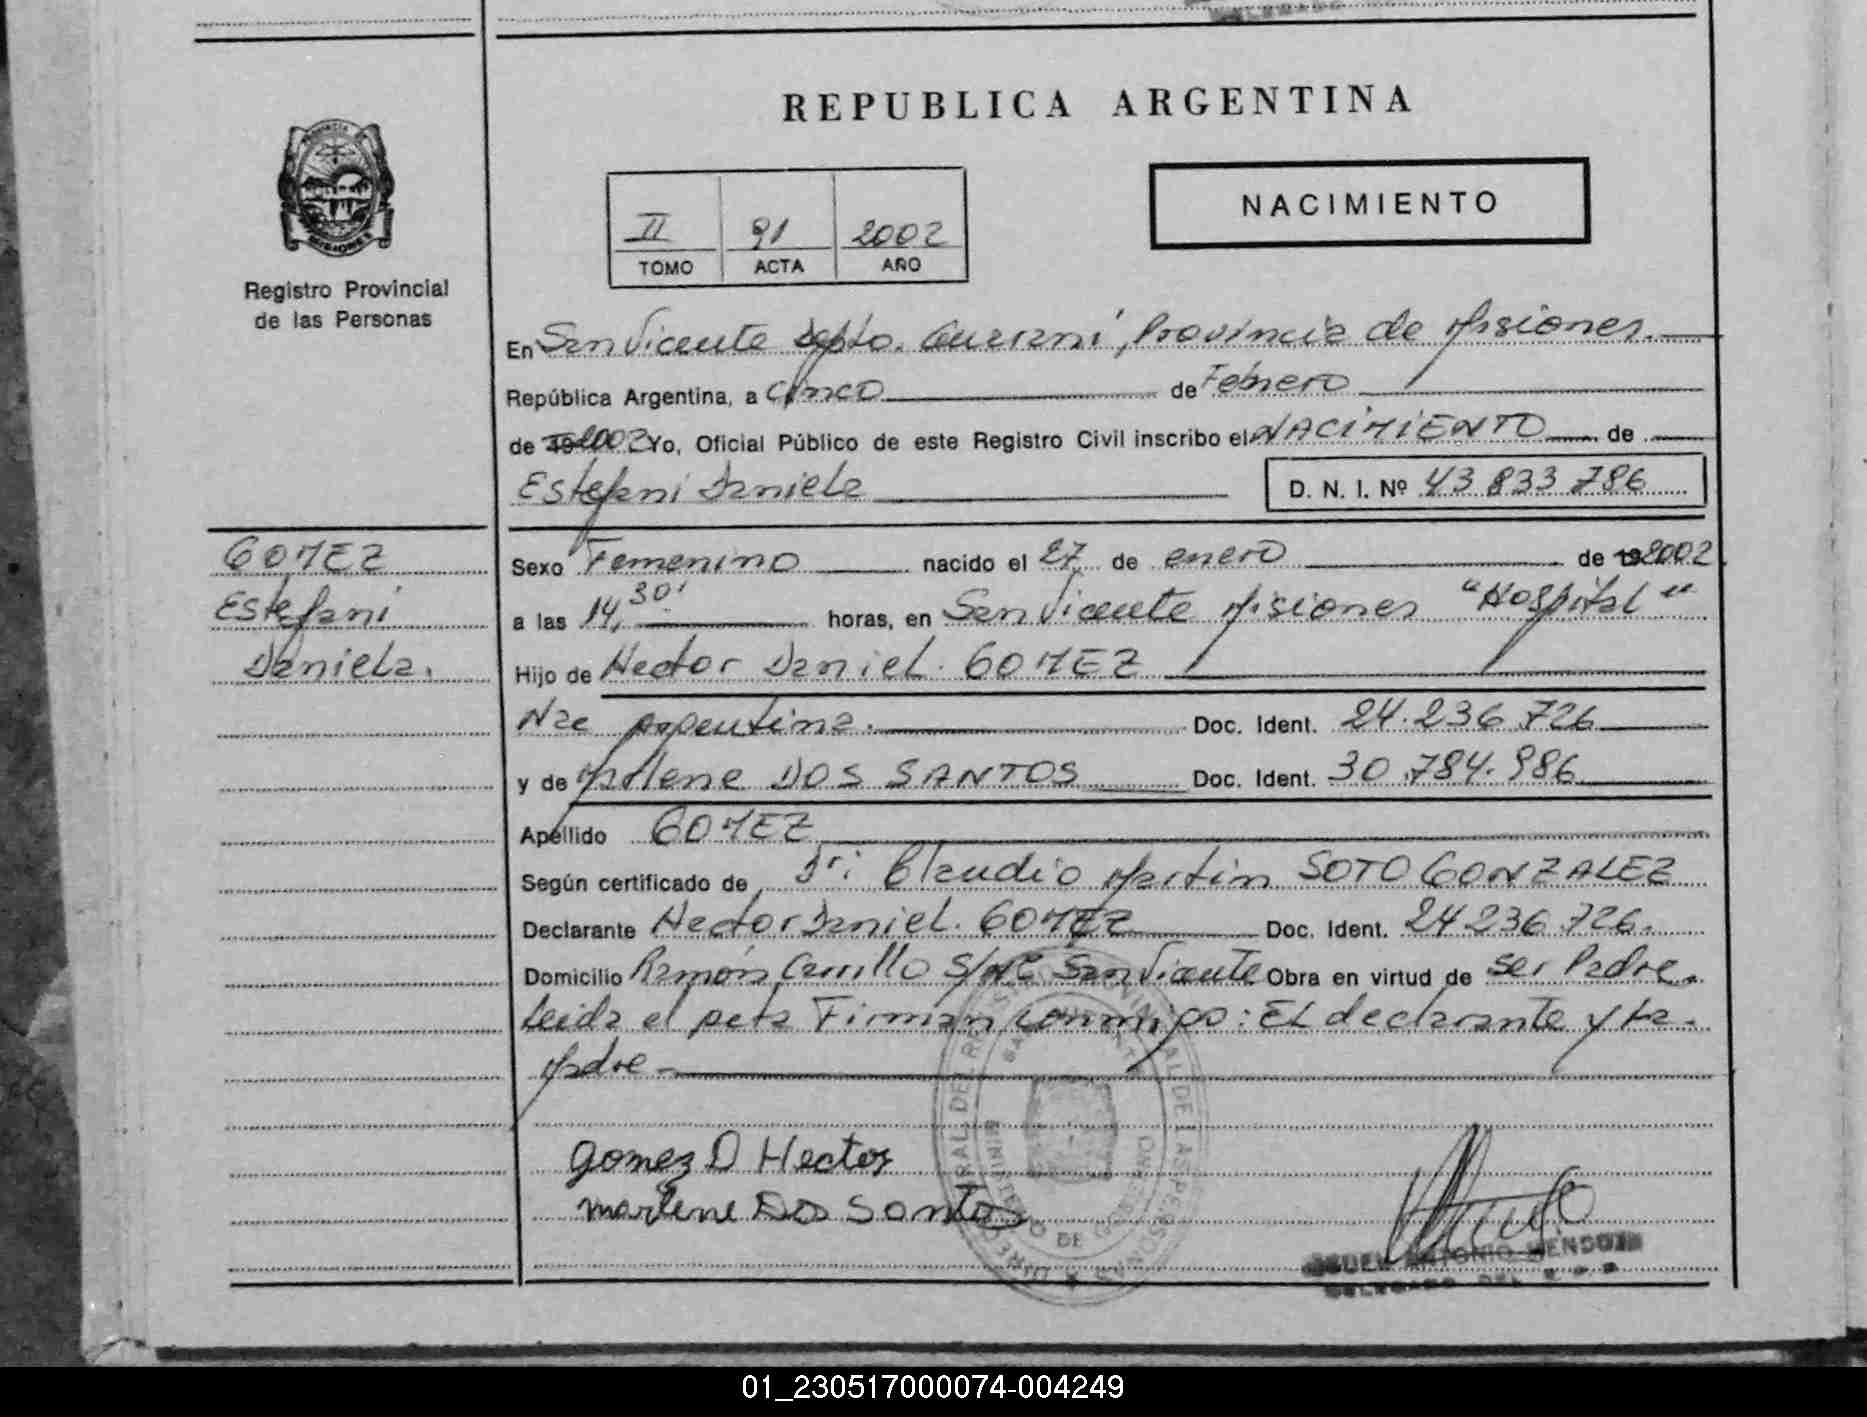 REPUBLICA ARGENTINA
PROVINCIA DE
MISIONES
Registro Provincial
de las Personas
NACIMIENTO
II 91 2002
TOMO ACTA AÑO
En San Vicente Dpto. Guarani, Provincia de Misiones.
República Argentina, a cinco de Febrero
de 192002 Yo, Oficial Público de este Registro Civil inscribo el NACIMIENTO de
Estefani Daniela
D. N. I. Nº 43 833 786
GOMEZ
Estefani
Daniela.
Sexo Femenino nacido el 27 de enero de 192002
a las 14,30' horas, en San Vicente Misiones "Hospital"
Hijo de Hector Daniel GOMEZ
Nac argentina. Doc. Ident. 24.236.726
y de Marlene DOS SANTOS Doc. Ident. 30.784.986
Apellido GOMEZ
Según certificado de Dr: Claudio Martin SOTO GONZALEZ
Declarante Hector Daniel GOMEZ Doc. Ident. 24 236.726.
Domicilio Ramón Carrillo S/Nº San Vicente Obra en virtud de ser Padre.
Leida el acta Firman conmigo: El declarante y La
Madre
gomez D Hector
marlene Dos Santos
ANTONIO MENDOZA
DELEGADO DEL
01_230517000074-004249